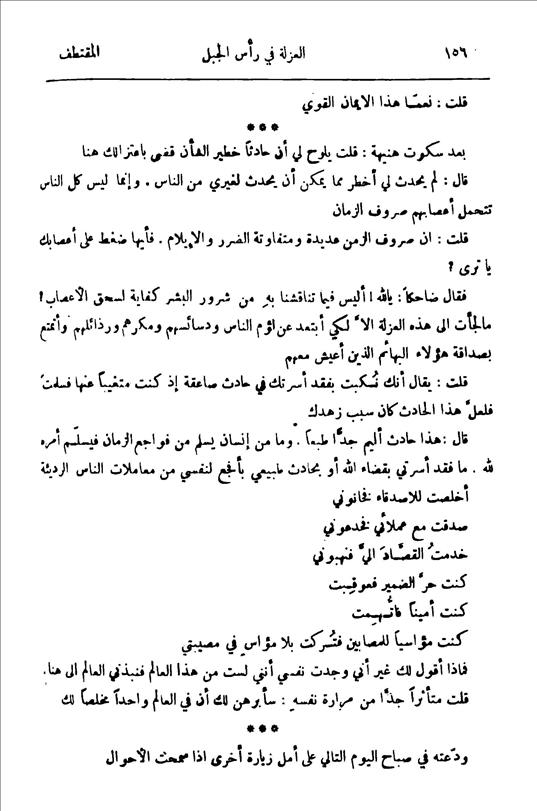 ١٥٦ العزلة في رأس الجبل المقتطف
قلت : نعمّا هذا الايمان القوي
***
بعد سكوت هنيهة : قلت يلوح لي أن حادثاً خطير الشأن قضى باعتزالك هنا
قال : لم يحدث لي أخطر مما يمكن أن يحدث لغيري من الناس . وإنما ليس كل الناس
تتحمل أعصابهم صروف الزمان
قلت : ان صروف الزمن عديدة ومتفاوتة الضرر والإيلام . فأيها ضغط على أعصابك
يا ترى ؟
فقال ضاحكاً : يالله ! أليس فيما تناقشنا بهِ من شرور البشر كفاية لسحق الأعصاب !
مالجأت الى هذه العزلة الاَّ لكي أبتعد عن لؤم الناس ودسائسهم ومكرهم ورذائلهم وأتمتع
بصداقة هؤلاء البهائم الذين أعيش معهم
قلت : يقال أنك نُكبت بفقد أسرتك في حادث صاعقة إذ كنت متغيباً عنها فسلمتَ
فلعلَّ هذا الحادث كان سبب زهدك
قال : هذا حادث أليم جدًّا طبعاً . وما من إنسان يسلم من فواجع الزمان فيسلّم أمره
لله . ما فقد أسرتي بقضاء الله أو بحادث طبيعي بأفجع لنفسي من معاملات الناس الرديئة
أخلصت للاصدقاء فخانوني
صدقت مع عملائي فخدعوني
خدمتُ القصَّادَ اليَّ فنهبوني
كنت حرَّ الضمير فعوقِبت
كنت أميناً فاتُّهِمت
كنت مؤاسياً للمصابين فتُركت بلا مؤاس في مصيبتي
فماذا أقول لك غير أني وجدت نفسي أنني لست من هذا العالم فنبذني العالم الى هنا.
قلت متأثراً جدًّا من مرارة نفسهِ : سأبرهن لك أن في العالم واحداً مخلصاً لك
***
ودّعته في صباح اليوم التالي على أمل زيارة أخرى اذا سمحت الأحوال